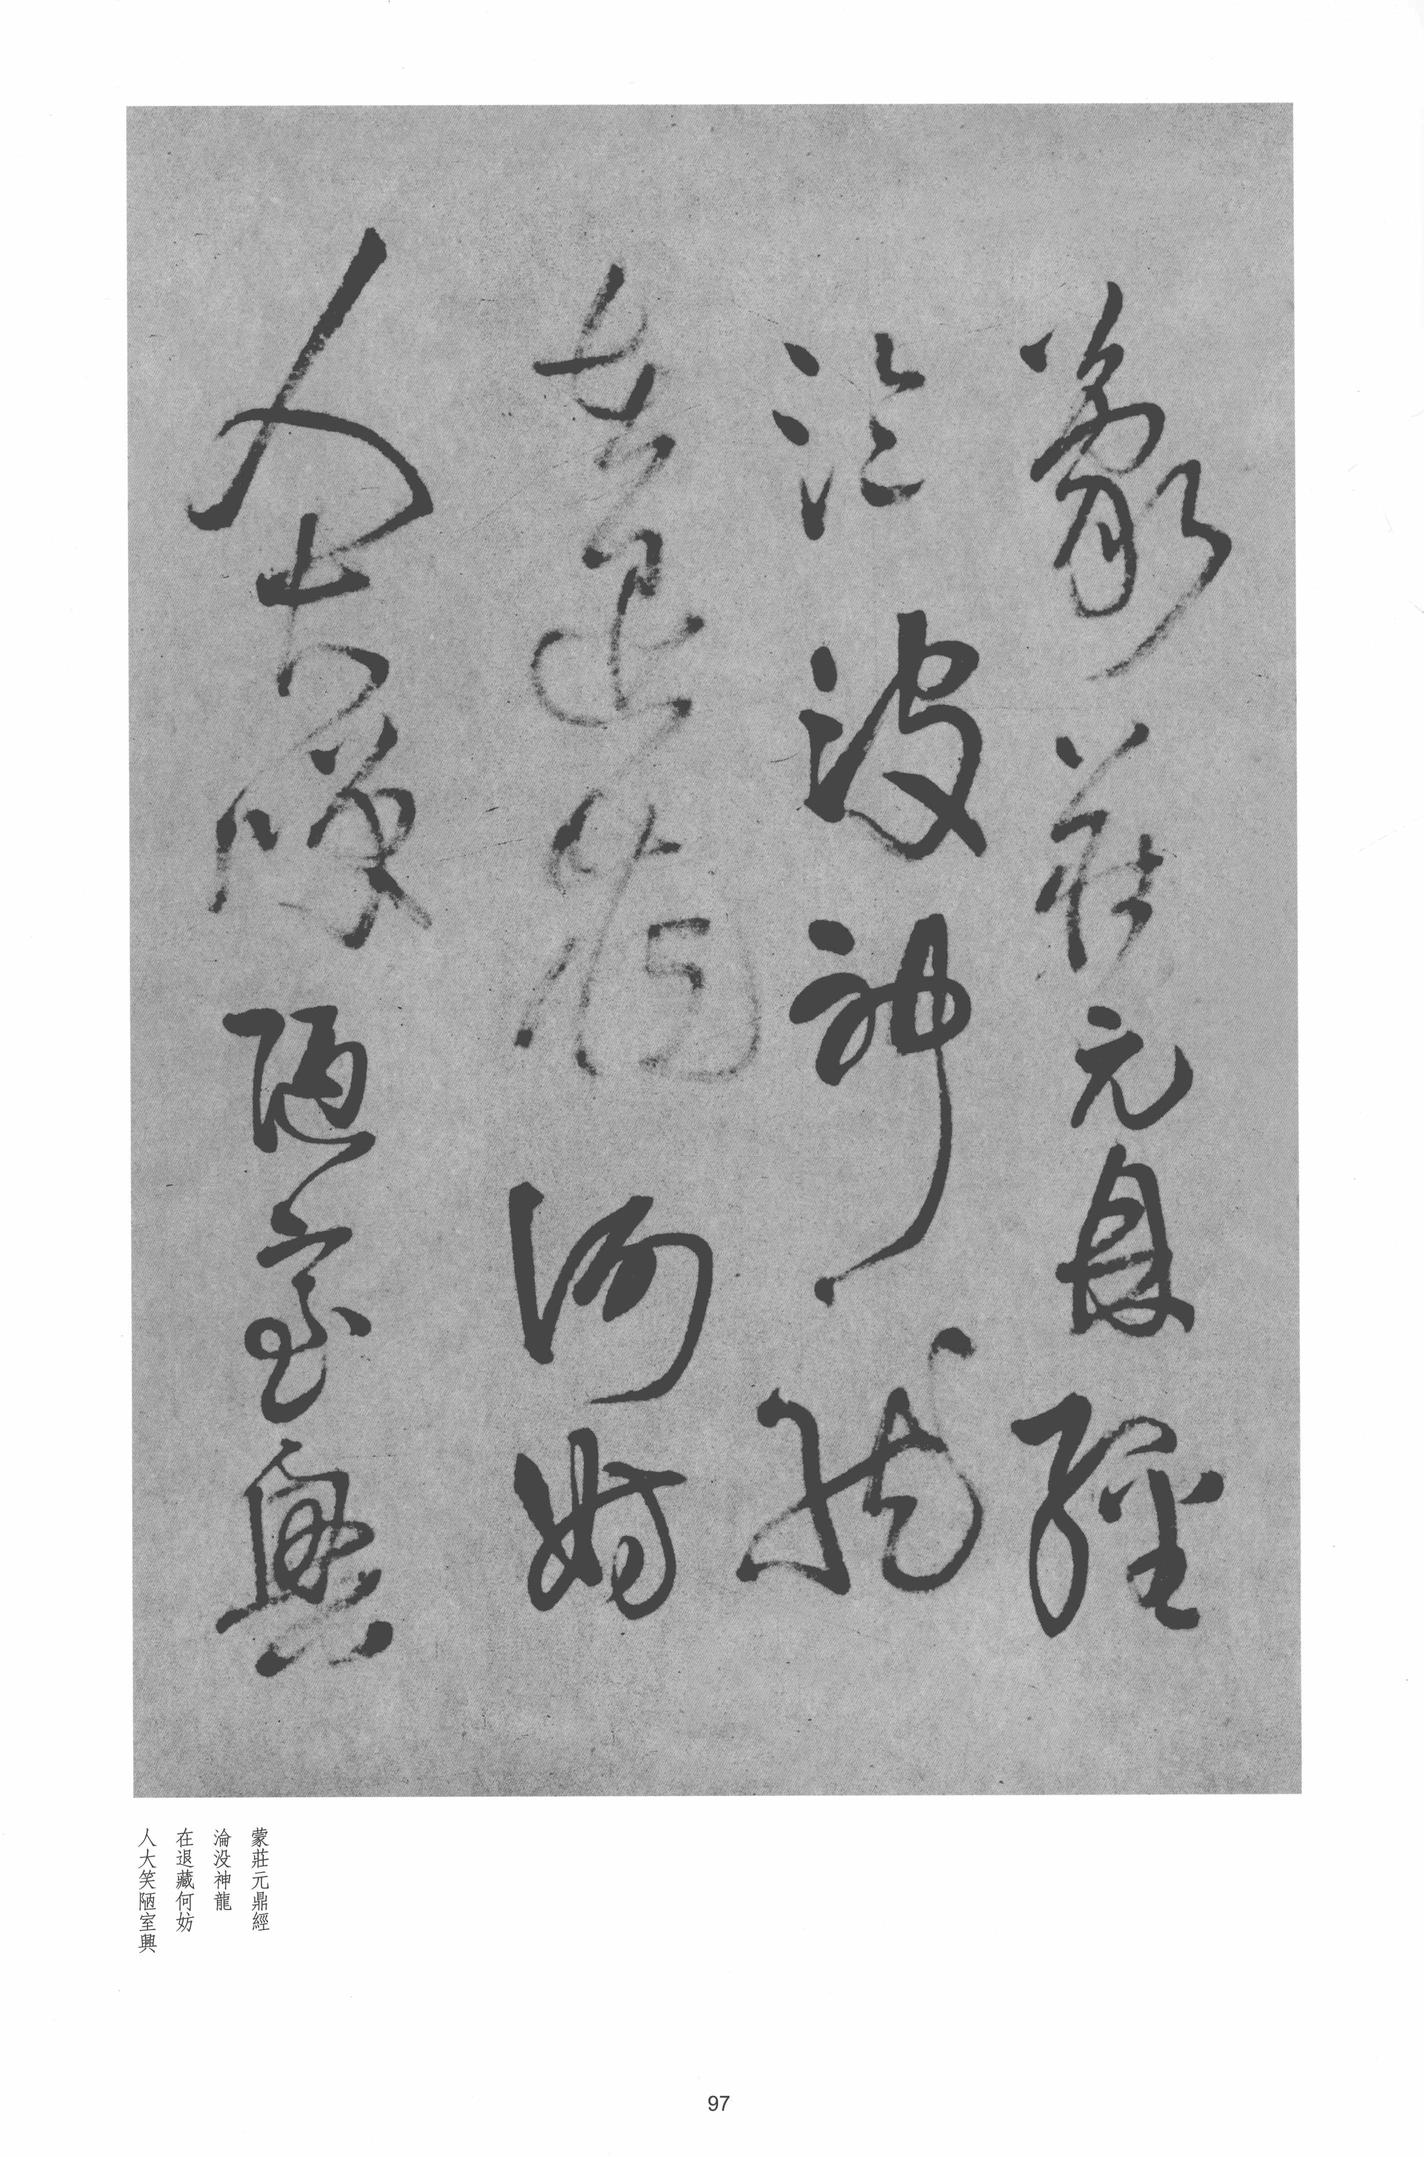 蒙莊元鼎經
淪没神龍
在退藏何妨
人大噱陋室興
蒙莊元鼎經
淪没神龍
在退藏何妨
人大笑陋室興
97